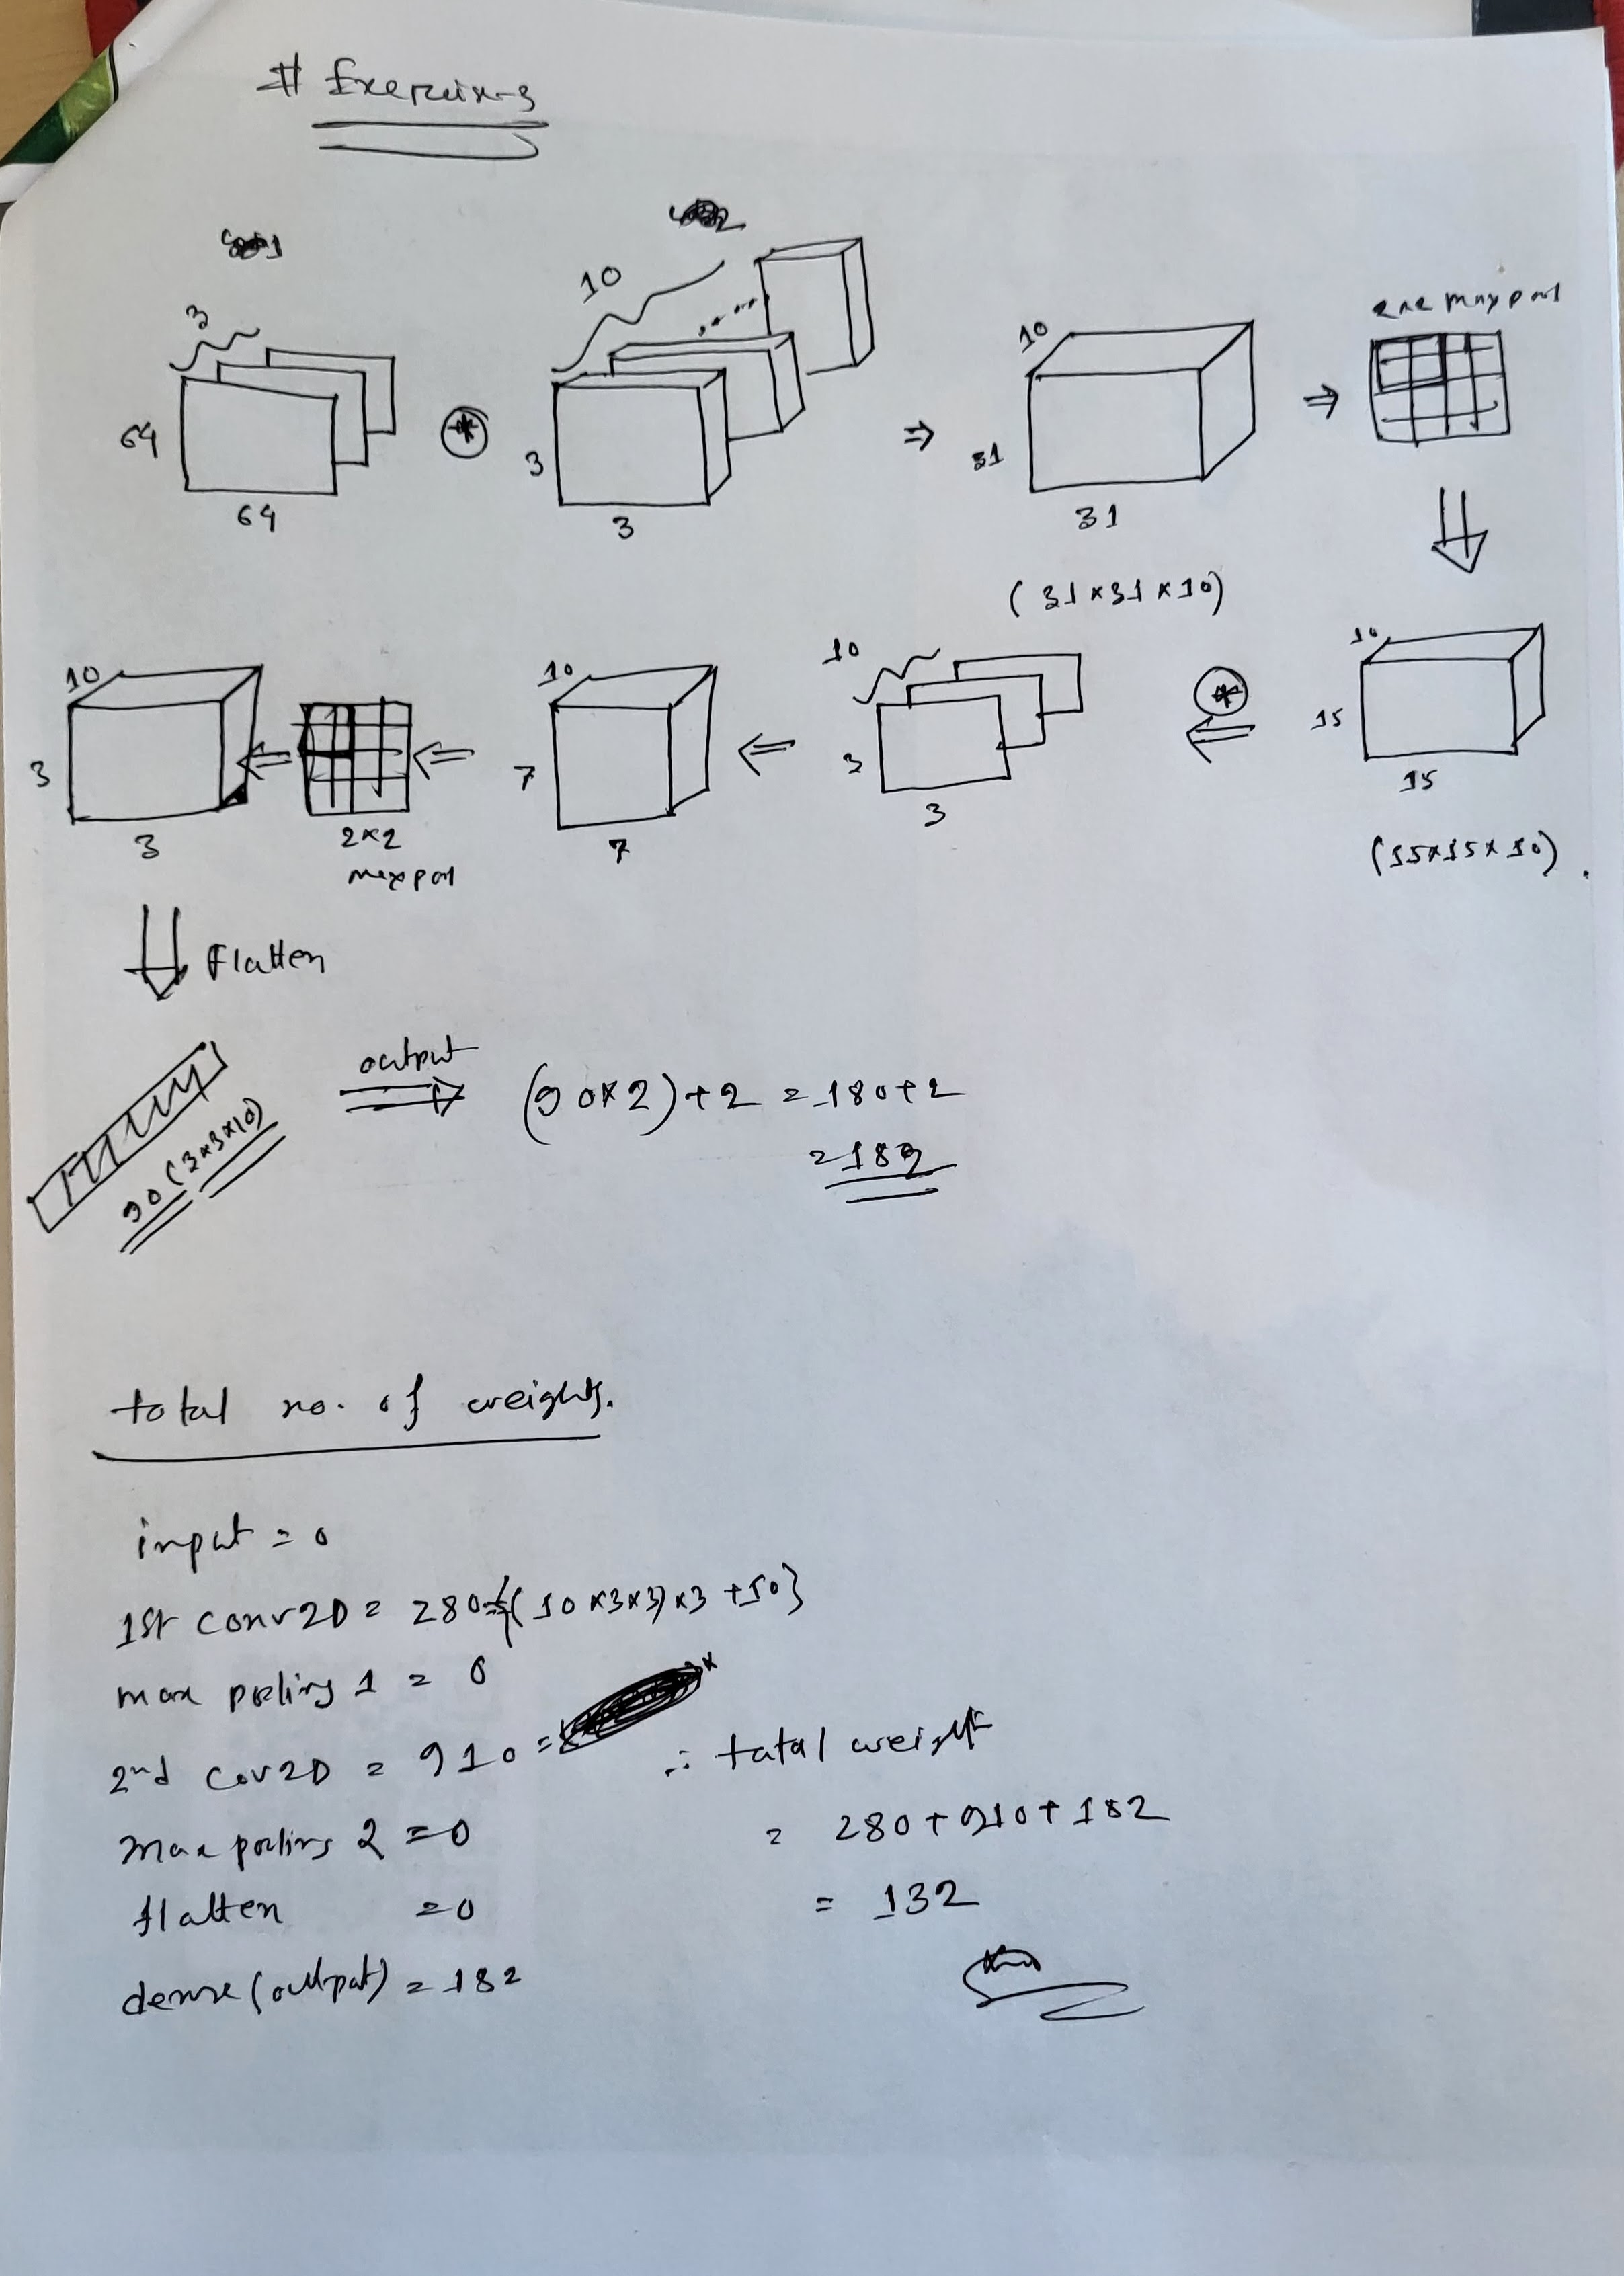 # Exercise-3
3
64
64
*
10
3
3
⇒
10
31
31
(31×31×10)
⇒
2×2 maxpool
10
15
15
(15×15×10).
*
10
3
3
10
7
7
2×2
maxpool
10
3
3
Flatten
90 (3×3×10)
output
(90×2)+2 = 180+2
= 182
total no. of weights.
input = 0
1st conv2D = 280 = {(10×3×3)×3+10}
max pooling 1 = 0
2nd Cov2D = 910 =
max pooling 2 = 0
flatten = 0
dense (output) = 182
∴ total weight
= 280 + 910 + 182
= 132